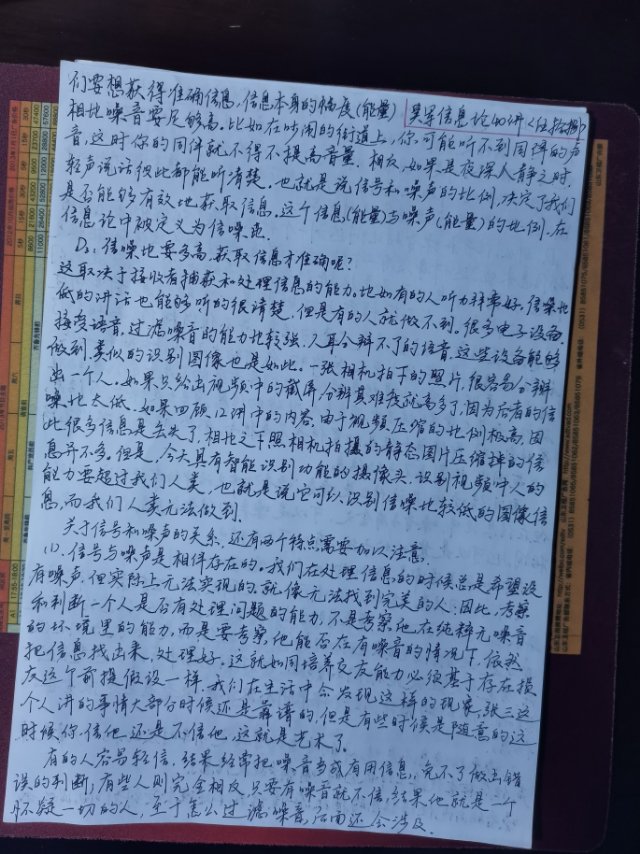 们要想获得准确信息,信息本身的幅度(能量)
吴军信息论40讲
相比噪音要足够高。比如在吵闹的街道上,你可能听不到同伴的声
音,这时你的同伴就不得不提高音量.相反,如果是夜深人静之时,
轻声说话彼此都能听清楚.也就是说信号和噪声的比例,决定了我们
是否能够有效地获取信息。这个信息(能量)与噪声(能量)的比例,在
信息论中被定义为信噪比.
信噪比要多高,获取信息才准确呢?
这取决于接收者捕获和处理信息的能力。比如有的人听力非常好,信噪比
低的讲话也能够听的很清楚,但是有的人就做不到。很多电子设备,
接受语音,过滤噪音的能力比较强.人耳分辨不了的语音,这些设备能够
做到.类似的识别图像也是如此.一张相机拍下的照片,很容易分辨
出一个人.如果只给出视频中的截屏,分辨其难度就高多了,因为后者的信
噪比太低.如果回顾12讲中的内容,由于视频压缩的比例极高,因
此很多信息是丢失了,相比之下照相机拍摄的静态图片压缩掉的信
息并不多.但是,今天具有智能识别功能的摄像头,识别视频中人的
能力要超过我们人类,也就是说它可以识别信噪比较低的图像信
息,而我们人类无法做到.
关于信号和噪声的关系,还有两个特点需要加以注意.
(1).信号与噪声是相伴存在的。我们在处理信息的时候总是希望没
有噪声,但实际上无法实现的,就像无法找到完美的人.因此,考察
和判断一个人是否有处理问题的能力,不是考察他在纯粹无噪音
的环境里的能力,而是要考察,他能否在有噪音的情况下,依然
把信息找出来,处理好。这就如同培养交友能力必须基于存在损
友这个前提假设一样.我们在生活中会发现这样的现象,张三这
个人讲的事情大部分时候还是靠谱的,但是有些时候是随意的.这
时候,你信他,还是不信他,这就是艺术了.
有的人容易轻信.结果经常把噪音当成有用信息,免不了做出错
误的判断,有些人则完全相反,只要有噪音就不信,结果他就是一个
怀疑一切的人,至于怎么过滤噪音,后面还会涉及.